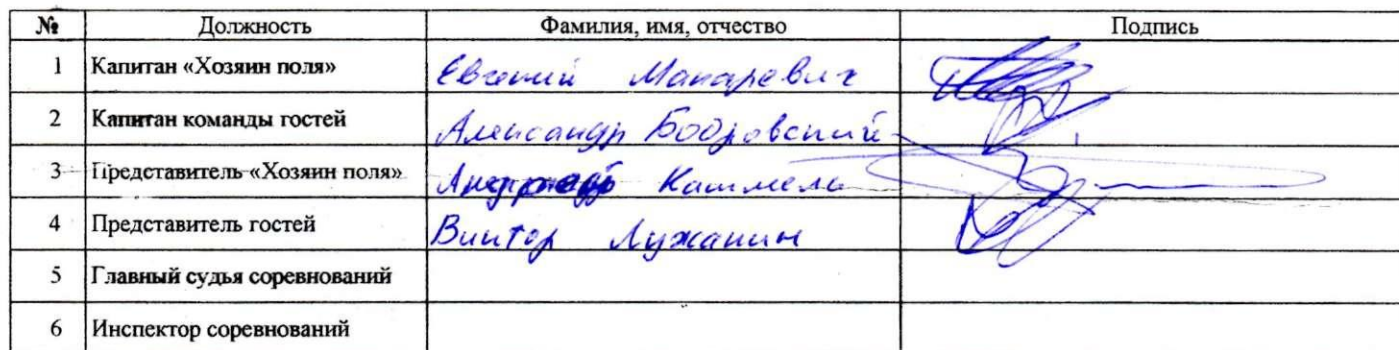 № Должность Фамилия, имя, отчество Подпись
1 Капитан «Хозяин поля» Евгений Макаревич
2 Капитан команды гостей Александр Бобровский
3 Представитель «Хозяин поля» Андрей
4 Представитель гостей Виктор Лужанин
5 Главный судья соревнований
6 Инспектор соревнований